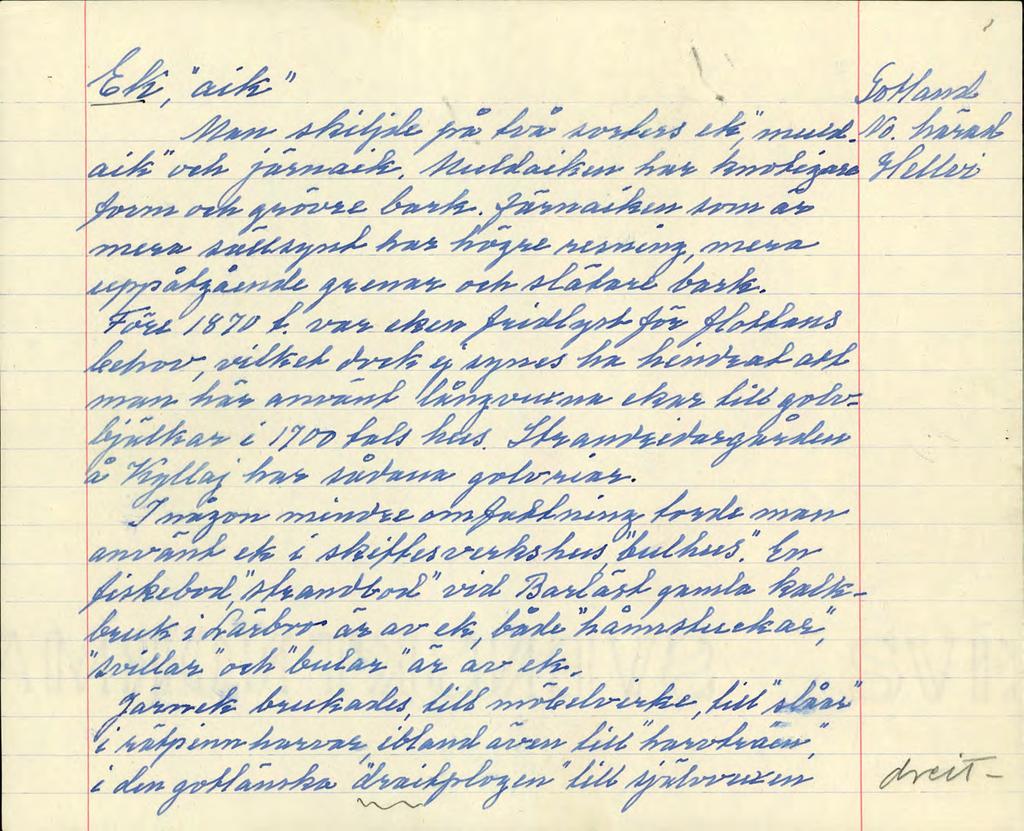 Ek, "aik"
Gotland
Man skiljde på två sorters ek, "muld-
No. härad
aik" och järnaik. Muldaiken har knotigare
Hellvi
form och grövre bark. Järnaiken som är
mera sällsynt har högre resning, mera
uppåtgående grenar och slätare bark.
Före 1870 t. var eken fridlyst för flottans
behov, vilket dock ej synes ha hindrat att
man här använt långvuxna ekar till golv-
bjälkar i 1700 tals hus. Strandridargården
å Kyllaj har sådana golvriar.
I någon mindre omfattning torde man
använt ek i skiftesverkshus, "bulhus". En
fiskebod, "strandbod" vid Barläst gamla kalk-
bruk i Lärbro är av ek, både "hånnstuckar",
"svillar" och "bular" är av ek.
Järnek brukades, till möbelvirke, till "slåar"
i rätpinnharvar, ibland även till "harvträen",
i den gotlänska "draitplogen" till självvuxen
dreit-